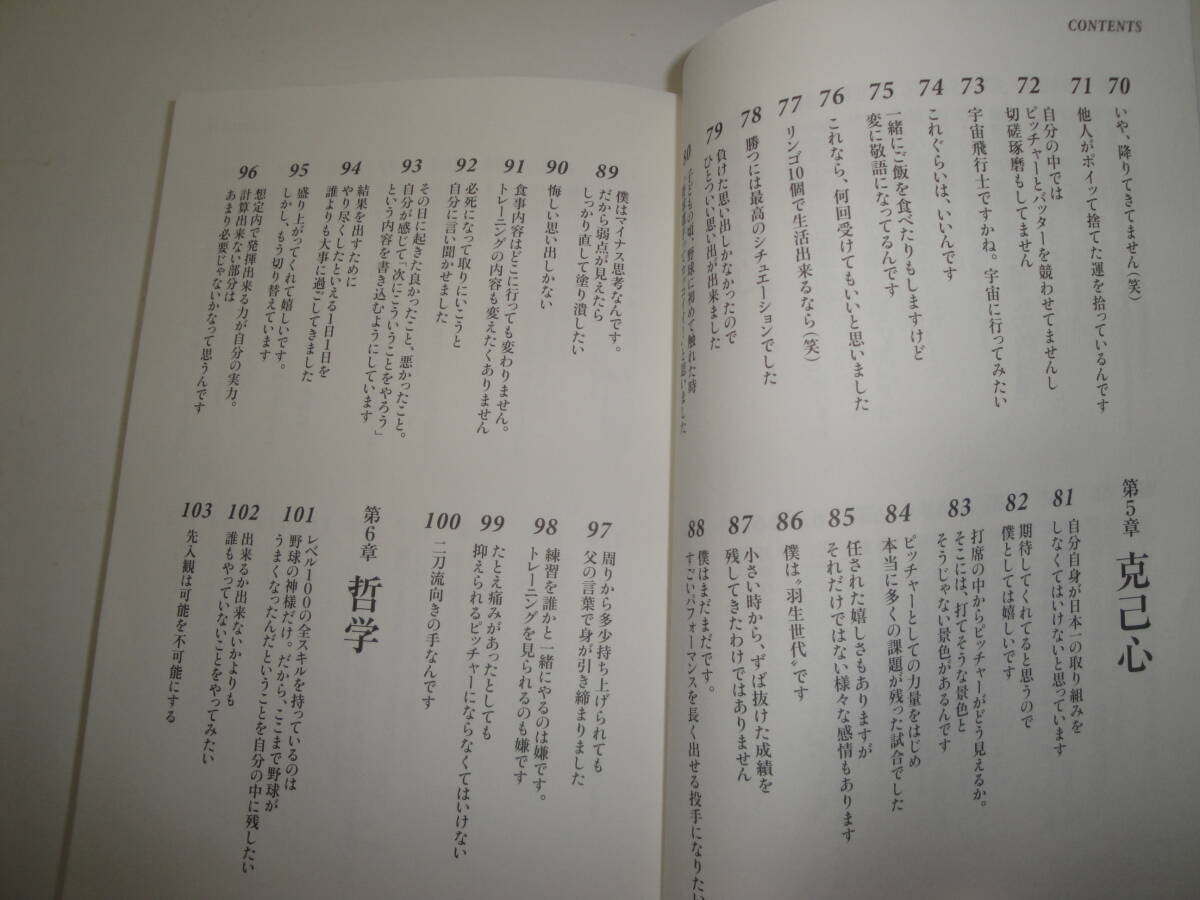 CONTENTS
70
いや、降りてきてません(笑)
71
他人がポイッて捨てた運を拾っているんです
72
自分の中では
ピッチャーとバッターを競わせてませんし
切磋琢磨もしてません
73
宇宙飛行士ですかね。宇宙に行ってみたい
74
これぐらいは、いいんです
75
一緒にご飯を食べたりもしますけど
変に敬語になってるんです
76
これなら、何回受けてもいいと思いました
77
リンゴ10個で生活出来るなら(笑)
78
勝つには最高のシチュエーションでした
79
負けた思い出しかなかったので
ひとついい思い出が出来ました
80
子どもの頃、野球に初めて触れた時
第5章 克己心
81
自分自身が日本一の取り組みを
しなくてはいけないと思っています
82
期待してくれてると思うので
僕としては嬉しいです
83
打席の中からピッチャーがどう見えるか。
そこには、打てそうな景色と
そうじゃない景色があるんです
84
ピッチャーとしての力量をはじめ
本当に多くの課題が残った試合でした
85
任された嬉しさもありますが
それだけではない様々な感情もあります
86
僕は〝羽生世代〟です
87
小さい時から、ずば抜けた成績を
残してきたわけではありません
88
僕はまだまだです。
すごいパフォーマンスを長く出せる投手になりたい
89
僕はマイナス思考なんです。
だから弱点が見えたら
しっかり直して塗り潰したい
90
悔しい思い出しかない
91
食事内容はどこに行っても変わりません。
トレーニングの内容も変えたくありません
92
必死になって取りにいこうと
自分に言い聞かせました
93
その日に起きた良かったこと、悪かったこと。
自分が感じて、次にこういうことをやろう」
という内容を書き込むようにしています
94
結果を出すために
やり尽くしたといえる1日1日を
誰よりも大事に過ごしてきました
95
盛り上がってくれて嬉しいです。
しかし、もう切り替えています
96
想定内で発揮出来る力が自分の実力。
計算出来ない部分は
あまり必要じゃないかなって思うんです
97
周りから多少持ち上げられても
父の言葉で身が引き締まりました
98
練習を誰かと一緒にやるのは嫌です。
トレーニングを見られるのも嫌です
99
たとえ痛みがあったとしても
抑えられるピッチャーにならなくてはいけない
100
二刀流向きの手なんです
第6章 哲学
101
レベル100の全スキルを持っているのは
野球の神様だけ。だから、ここまで野球が
うまくなったんだということを自分の中に残したい
102
出来るか出来ないかよりも
誰もやっていないことをやってみたい
103
先入観は可能を不可能にする